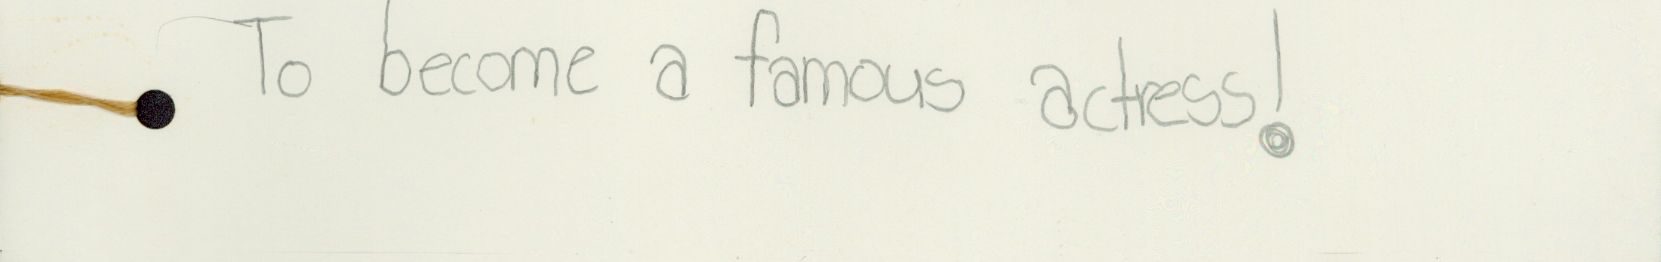 To become a famous actress!